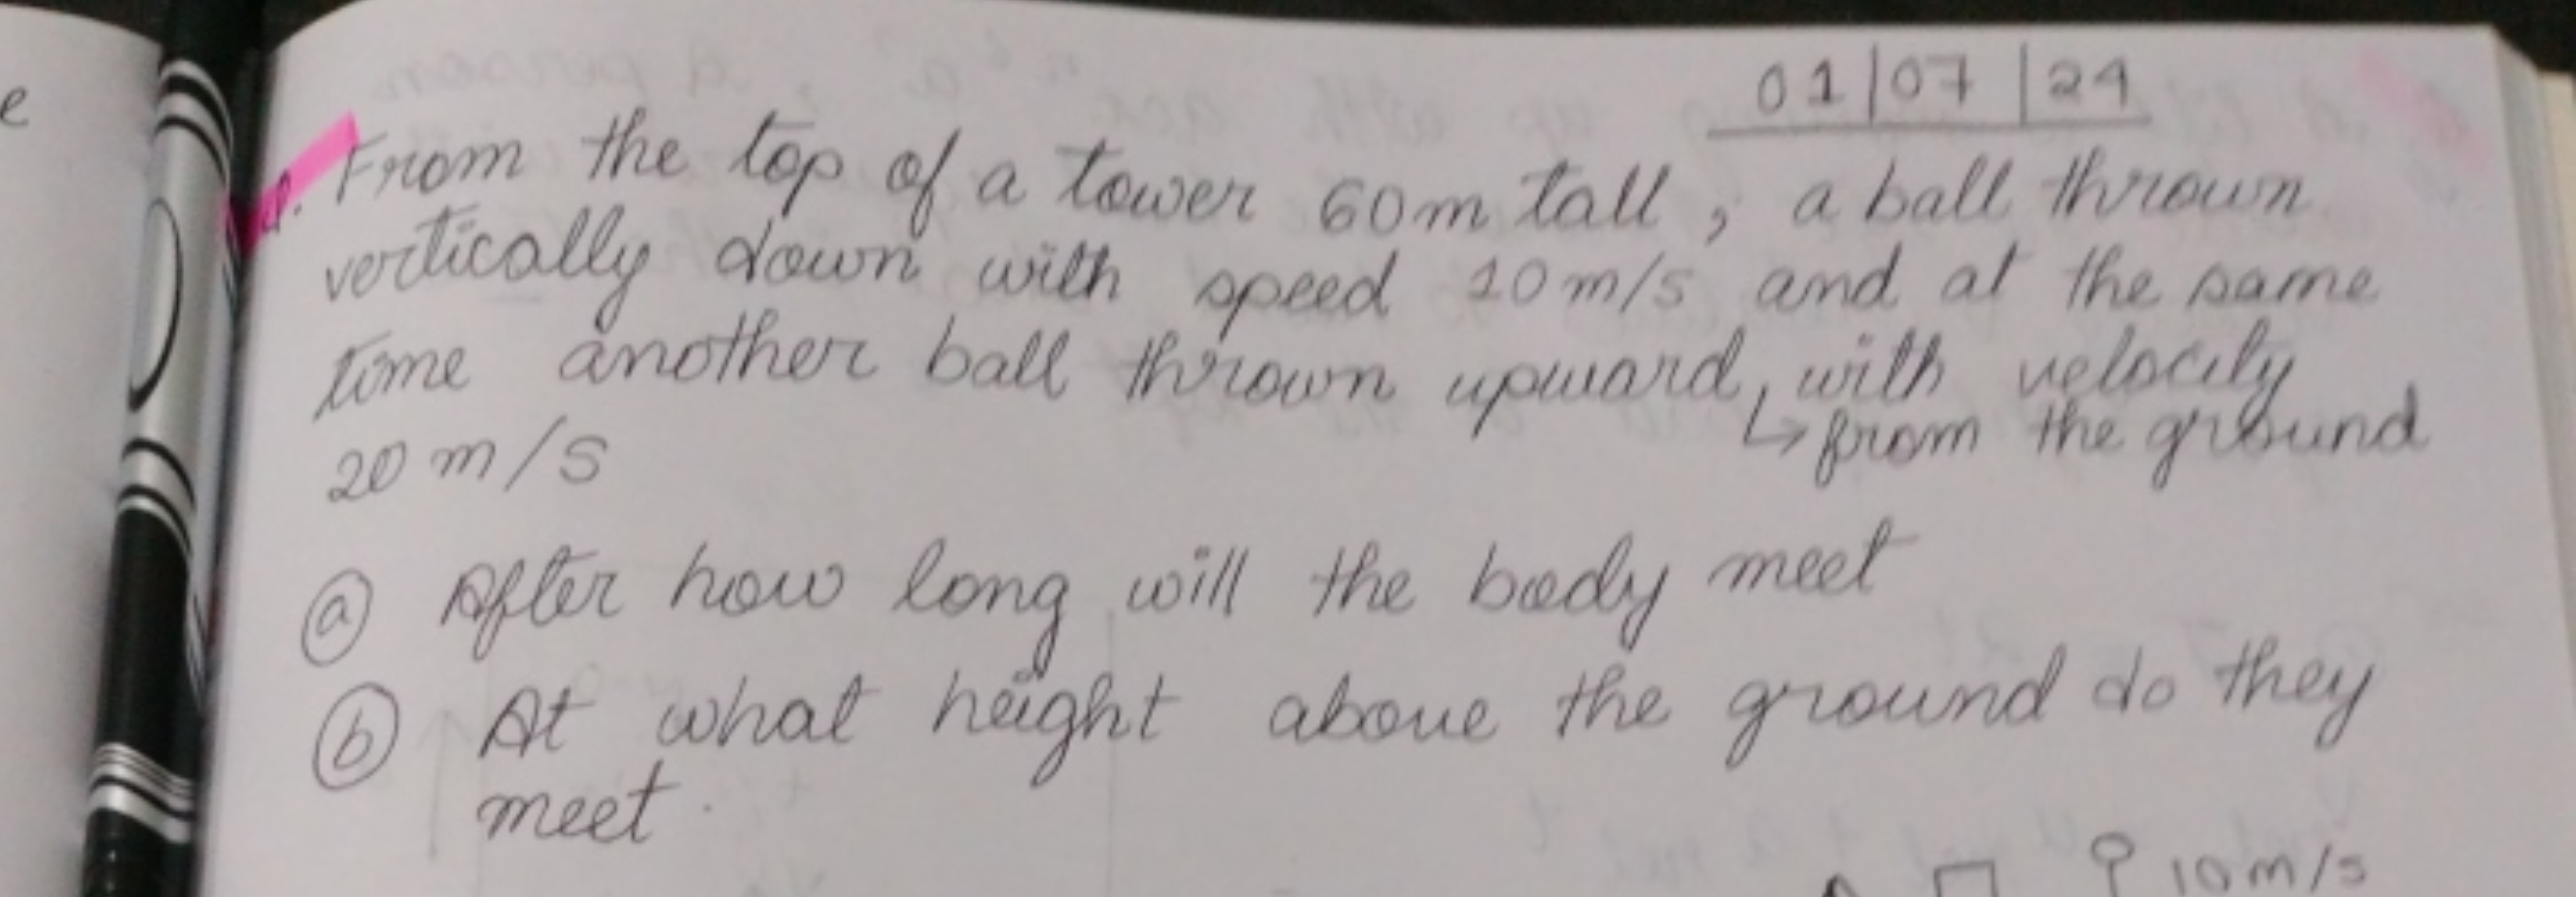 e
01/07/24
Q. From the top of a tower 60m tall, a ball thrown
vertically down with speed 10m/s and at the same
time another ball thrown upward, with velocity
↳ from the ground
20 m/s
ⓐ After how long will the body meet
ⓑ At what height above the ground do they
meet.
10m/s